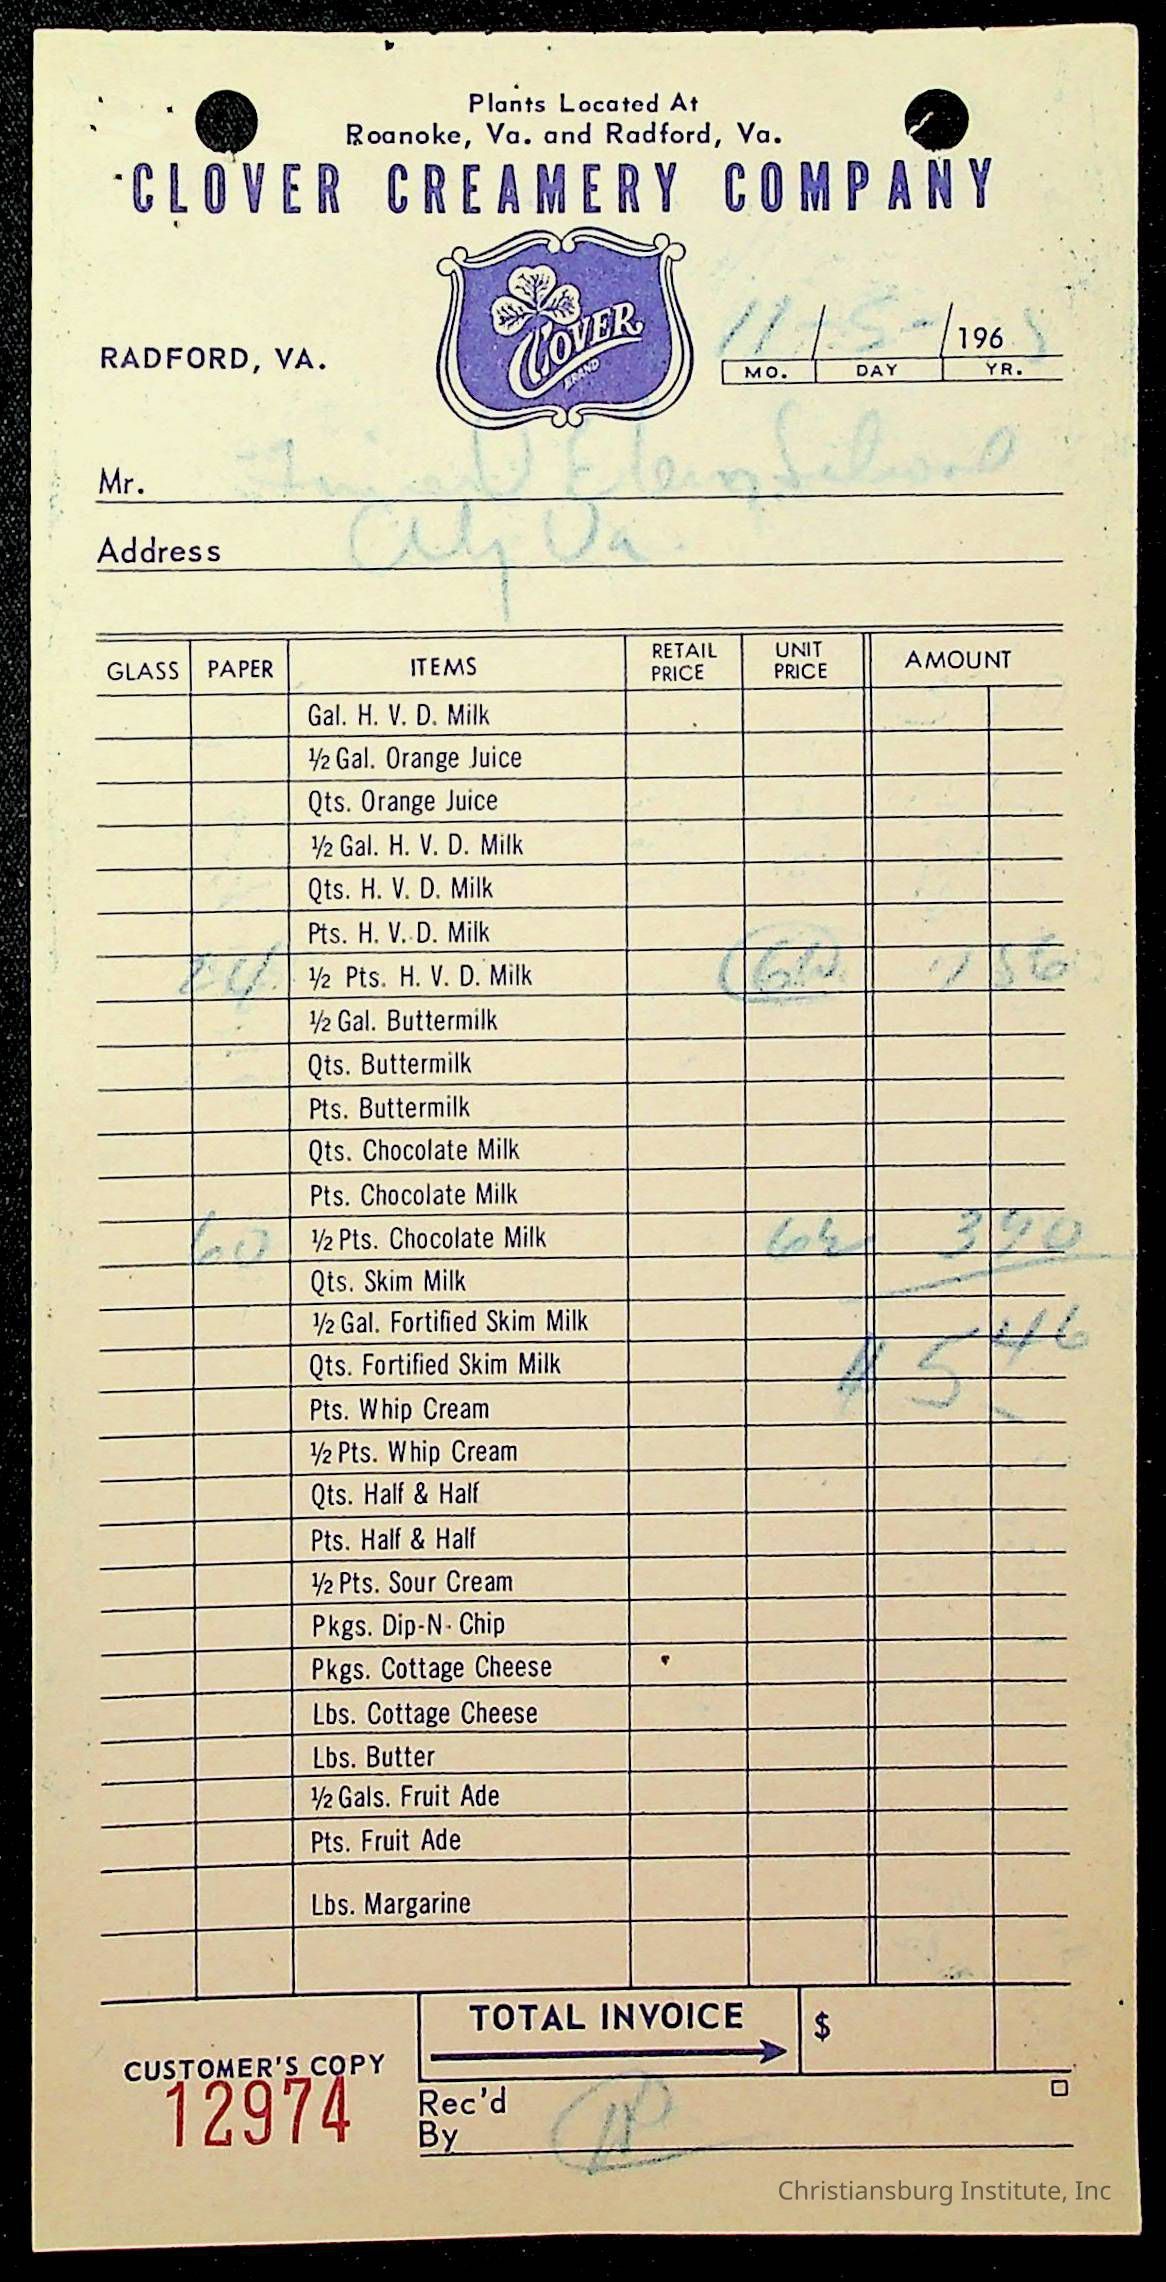 Plants Located At
Roanoke, Va. and Radford, Va.
CLOVER CREAMERY COMPANY
CLOVER
BRAND
RADFORD, VA.
11 - 5 - / 196
MO. DAY YR.
Mr. Elem School
Address City Va.
GLASS PAPER ITEMS RETAIL PRICE UNIT PRICE AMOUNT
Gal. H. V. D. Milk
½ Gal. Orange Juice
Qts. Orange Juice
½ Gal. H. V. D. Milk
Qts. H. V. D. Milk
Pts. H. V. D. Milk
24 ½ Pts. H. V. D. Milk 6½ 1 56
½ Gal. Buttermilk
Qts. Buttermilk
Pts. Buttermilk
Qts. Chocolate Milk
Pts. Chocolate Milk
60 ½ Pts. Chocolate Milk 6½ 3 90
Qts. Skim Milk
½ Gal. Fortified Skim Milk
Qts. Fortified Skim Milk $ 5 46
Pts. Whip Cream
½ Pts. Whip Cream
Qts. Half & Half
Pts. Half & Half
½ Pts. Sour Cream
Pkgs. Dip-N-Chip
Pkgs. Cottage Cheese
Lbs. Cottage Cheese
Lbs. Butter
½ Gals. Fruit Ade
Pts. Fruit Ade
Lbs. Margarine
TOTAL INVOICE $
CUSTOMER'S COPY
12974
Rec'd
By
Christiansburg Institute, Inc